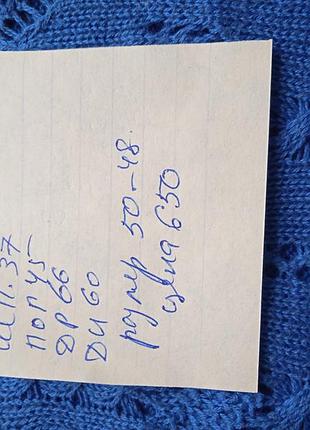 Ш П. 37
ПОГ 45
ДР 66
ДИ 60
размер 50-48.
цена 650